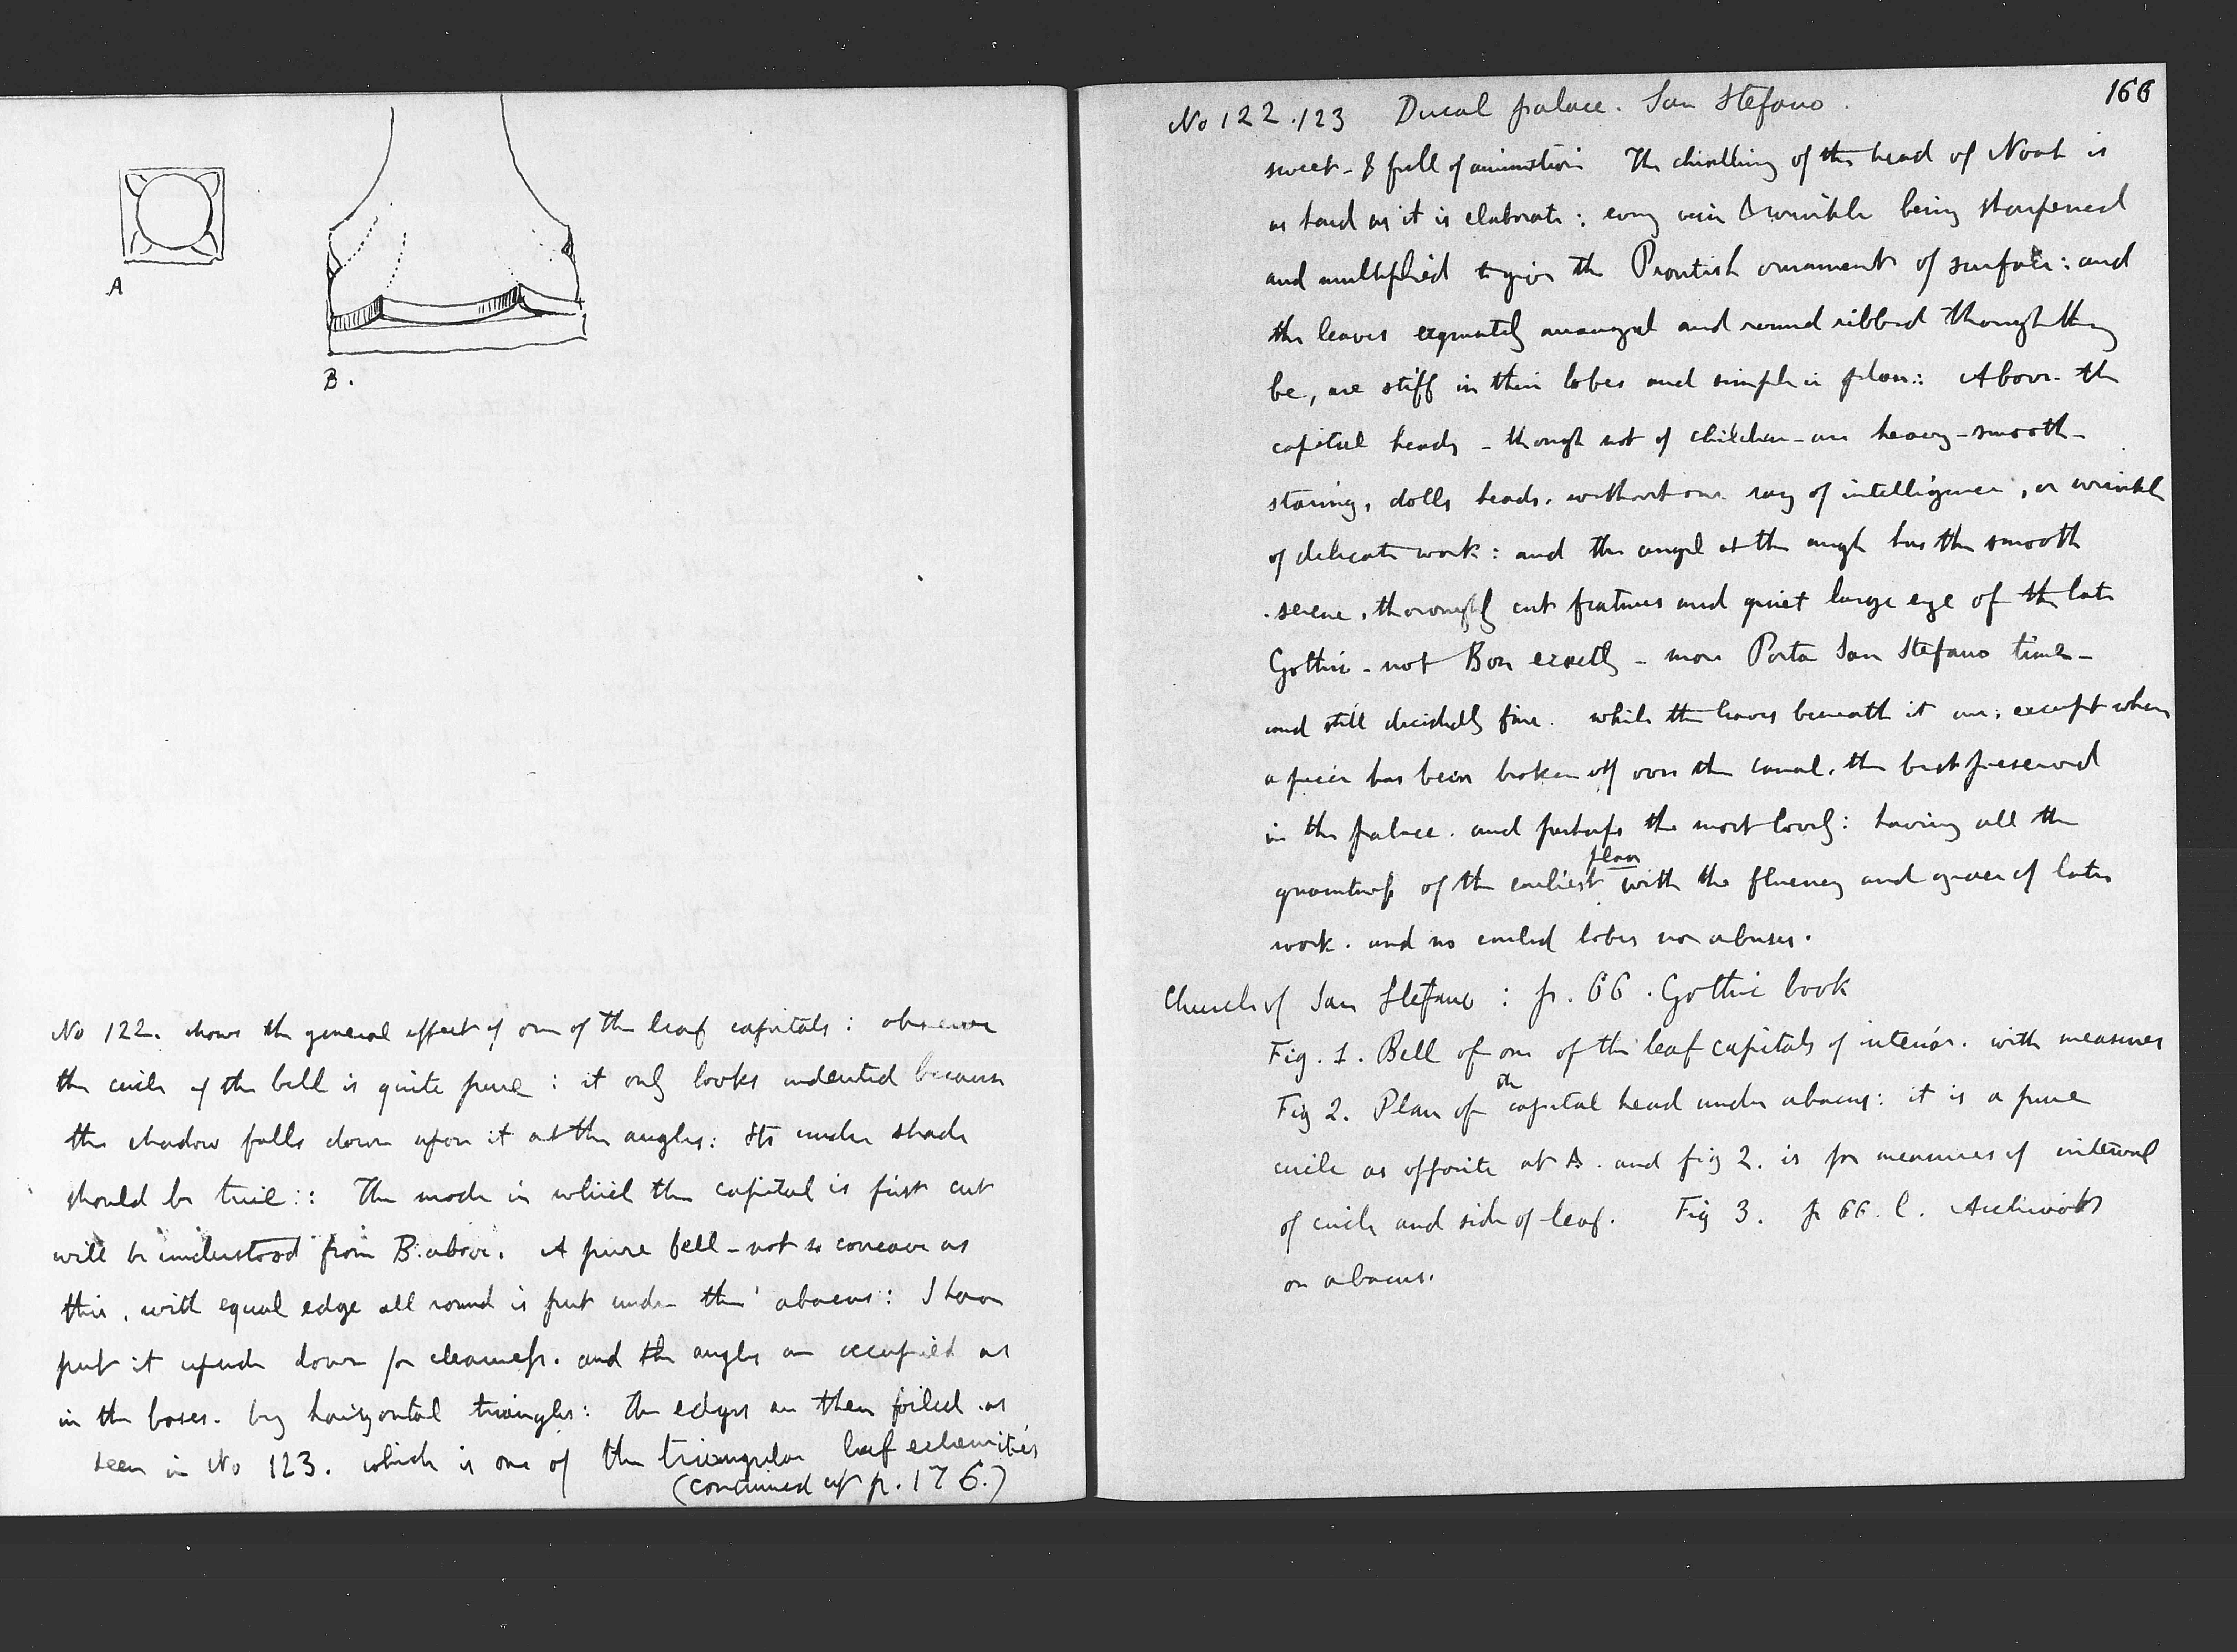 A
B.
No 122. shows the general effect of one of the leaf capitals: observe
the circle of the bell is quite pure : it only looks indented because
the shadow falls down upon it at the angles: Its under shade
should be true:: The mode in which the capital is first cut
will be understood from B. above. A pure bell - not so concave as
this, with equal edge all round is put under the abacus: I have
put it upside down for clearness. and the angles are occupied as
in the bases. by horizontal triangles: the edges are then foiled as
seen in No 123. which is one of the triangular leaf extremities
(continued at p. 176.)
166
No 122.123 Ducal palace. San Stefano.
sweet - & full of animation The chiselling of the head of Noah is
as hard as it is elaborate: every vein & wrinkle being sharpened
and multiplied to give the Proutish ornament of surface: and
the leaves exquisitely arranged and round ribbed though they
be, are stiff in their lobes and simple in plan:: Above the
capital heads - though not of children - are heavy - smooth -
staring, dolls heads. without one ray of intelligence, or wrinkle
of delicate work: and the angel at the angle has the smooth
serene, thoroughly cut features and quiet large eye of the late
Gothic - not Bon exactly - more Porta San Stefano time -
and still decidedly fine. while the leaves beneath it are, except where
a piece has been broken off over the canal, the best preserved
in the palace. and perhaps the most lovely: having all the
quaintness of the earliest plan with the fluency and grace of later
work. and no curled lobes nor abuses.
Church of San Stefano : p. 66. Gothic book
Fig. 1. Bell of one of the leaf capitals of interior. with measures
Fig 2. Plan of the capital head under abacus: it is a pure
circle as opposite at A. and fig 2. is for measures of interval
of circle and side of leaf. Fig 3. p 66. l. Archivolts
on abacus.